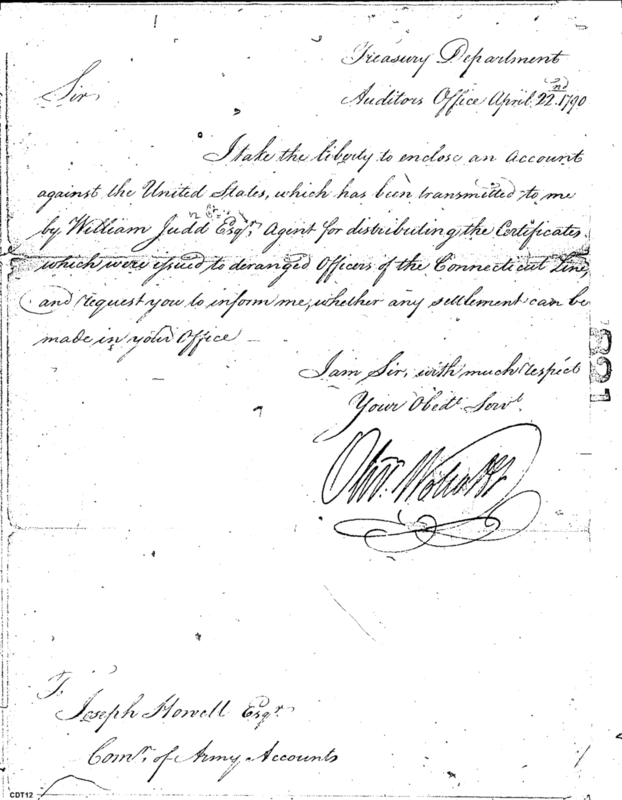 Treasury Department
Auditors Office April 22nd 1790
Sir,
I take the liberty to enclose an Account
against the United States, which has been transmitted to me
by William Judd Esqr. Agent for distributing the Certificates
which were issued to deranged Officers of the Connecticut Line,
and request you to inform me, whether any settlement can be
made in your Office
I am Sir, with much respect
Your Obedt. Servt.
Olivr. Wolcott
To
Joseph Howell Esqr.
Comr. of Army Accounts
CDT12